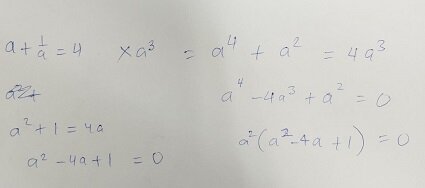 a + 1/a = 4   × a³   = a⁴ + a² = 4a³
a⁴ - 4a³ + a² = 0
a² + 1 = 4a
a²(a² - 4a + 1) = 0
a² - 4a + 1 = 0